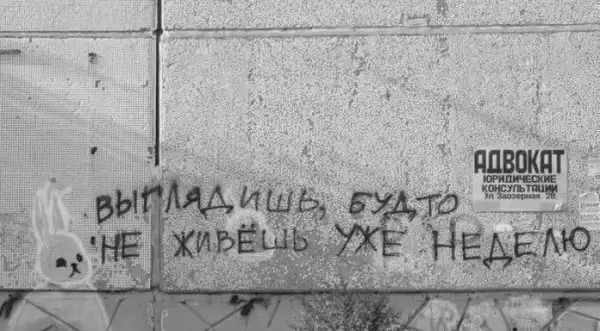 АДВОКАТ
ЮРИДИЧЕСКИЕ
КОНСУЛЬТАЦИИ
Ул Заозерная 28.
ВЫГЛЯДИШЬ, БУДТО
НЕ ЖИВЁШЬ УЖЕ НЕДЕЛЮ